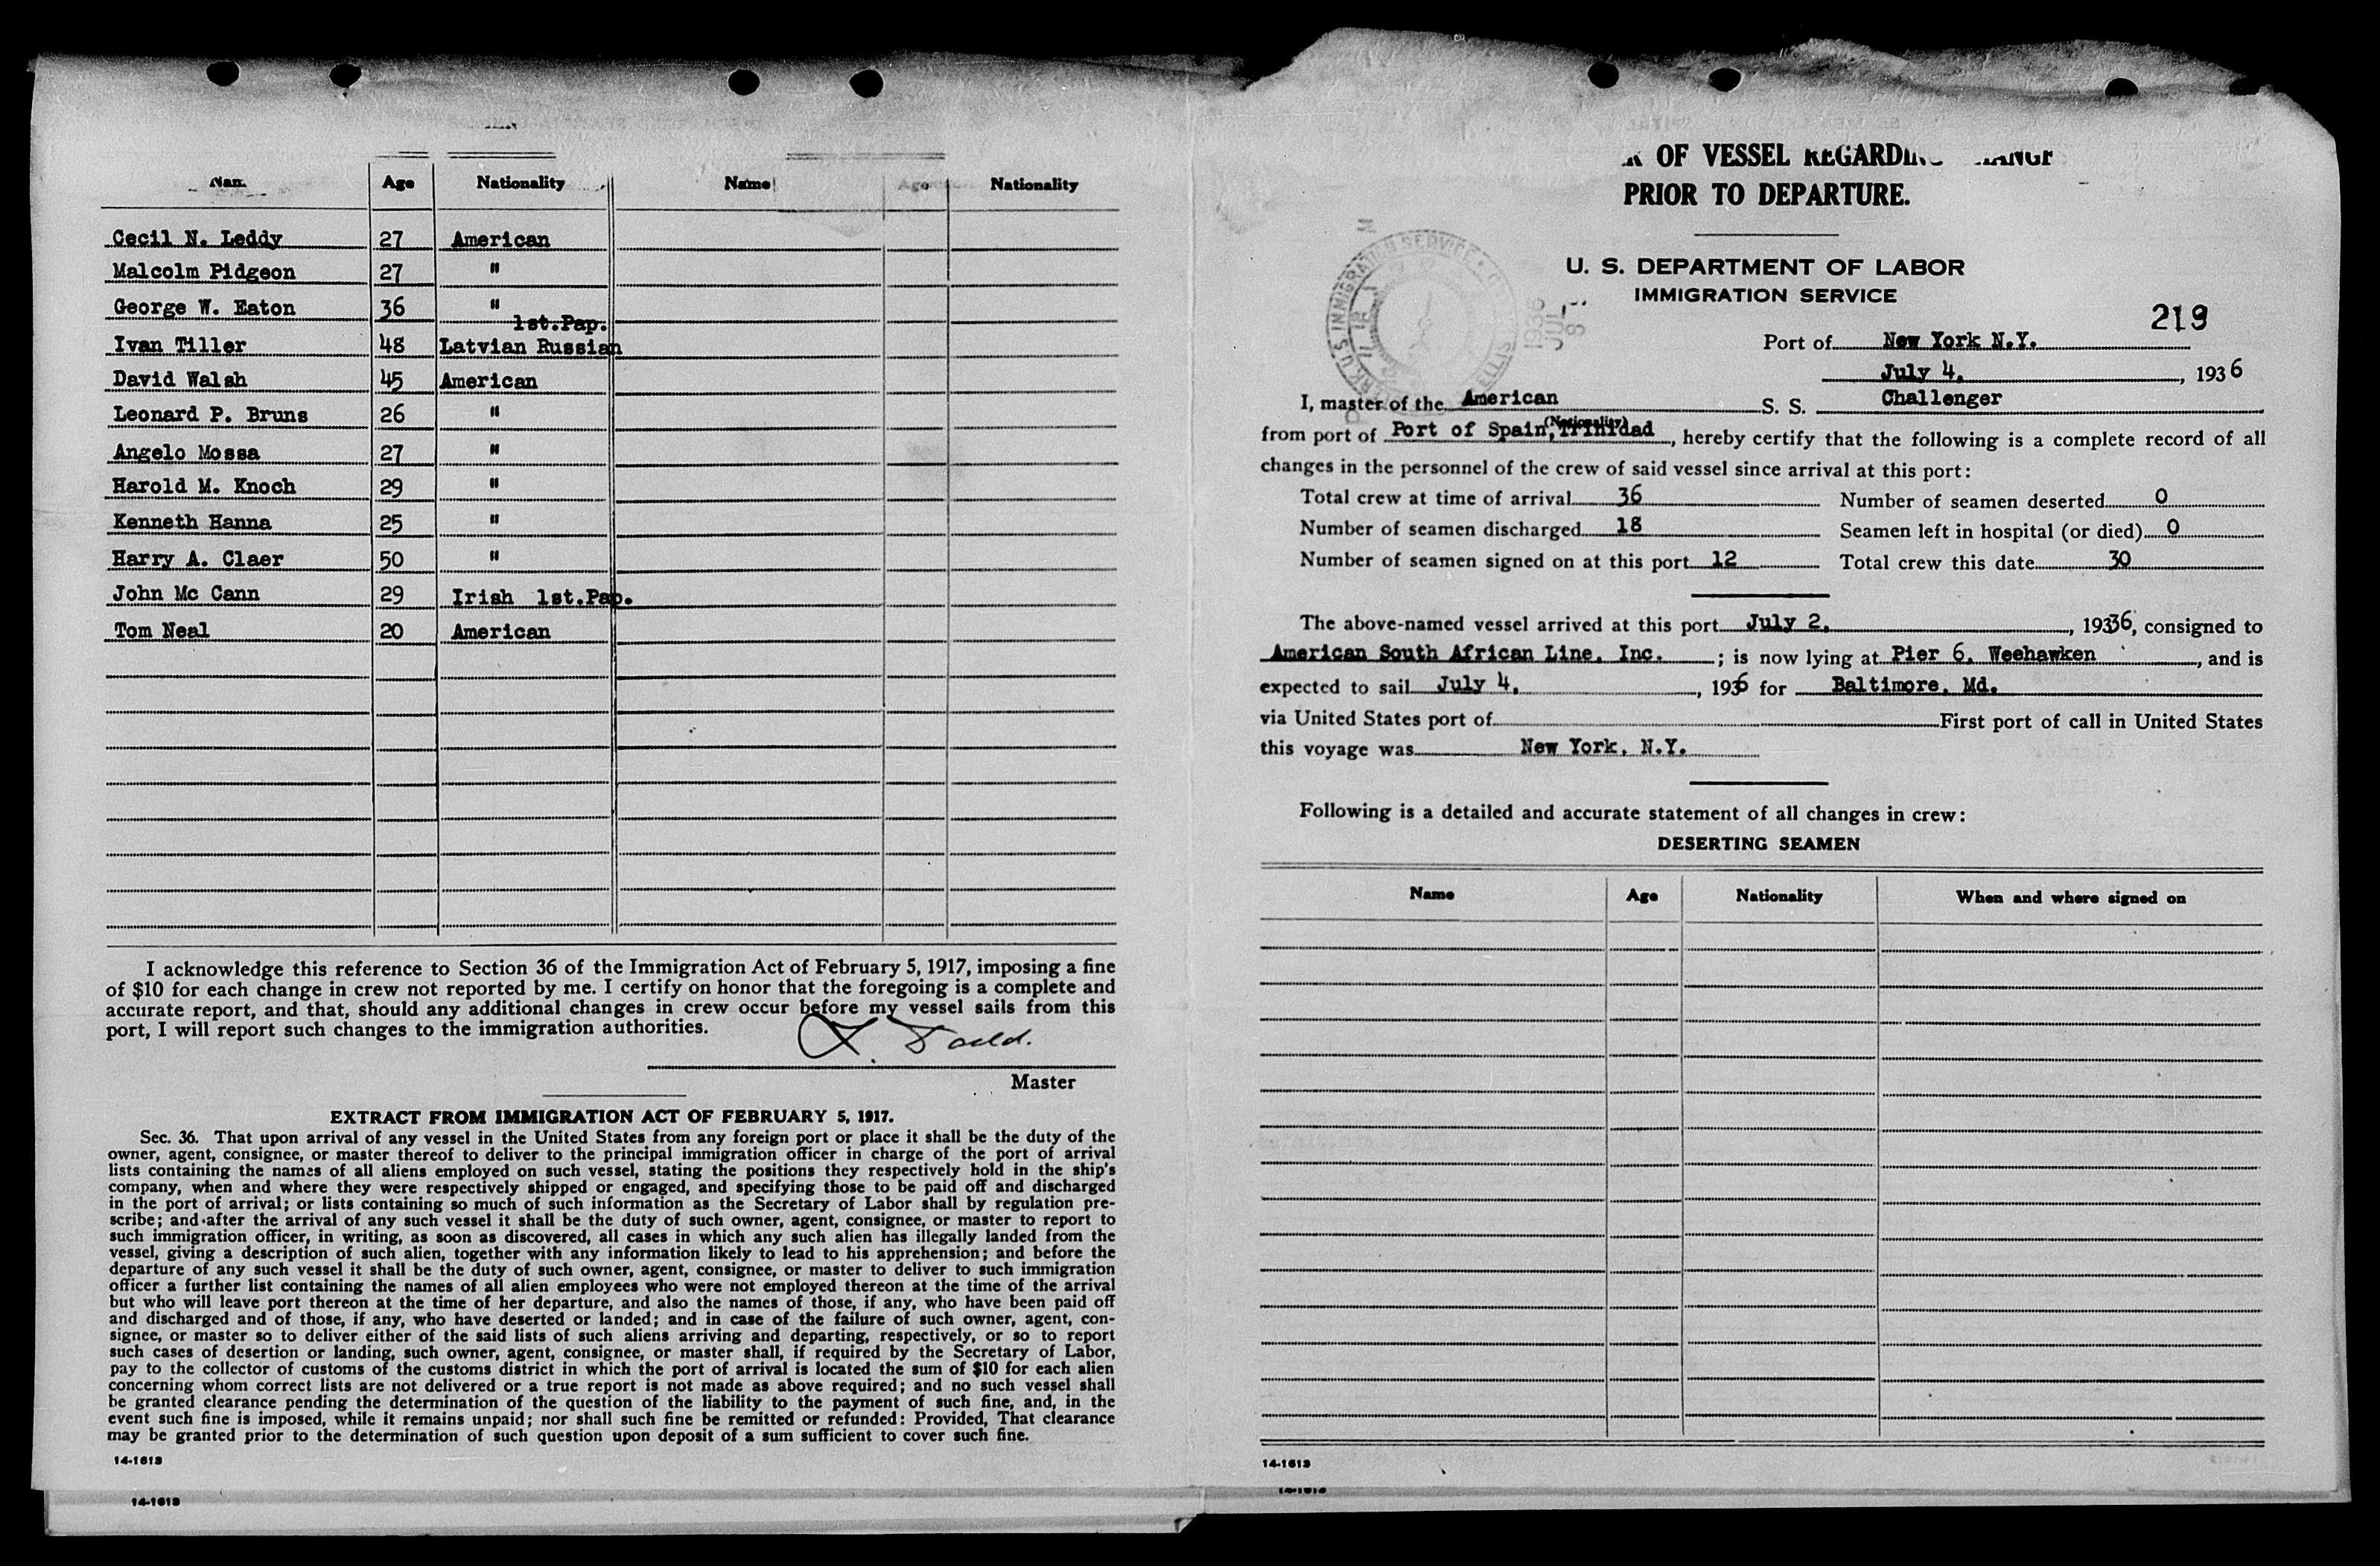 Age Nationality Name Age Nationality
Cecil N. Leddy 27 American
Malcolm Pidgeon 27 "
George W. Eaton 36 "
1st.Pap.
Ivan Tiller 48 Latvian Russian
David Walsh 45 American
Leonard P. Bruns 26 "
Angelo Mossa 27 "
Harold M. Knoch 29 "
Kenneth Hanna 25 "
Harry A. Claer 50 "
John Mc Cann 29 Irish 1st.Pap.
Tom Neal 20 American
I acknowledge this reference to Section 36 of the Immigration Act of February 5, 1917, imposing a fine
of $10 for each change in crew not reported by me. I certify on honor that the foregoing is a complete and
accurate report, and that, should any additional changes in crew occur before my vessel sails from this
port, I will report such changes to the immigration authorities.
Master
EXTRACT FROM IMMIGRATION ACT OF FEBRUARY 5, 1917.
Sec. 36. That upon arrival of any vessel in the United States from any foreign port or place it shall be the duty of the
owner, agent, consignee, or master thereof to deliver to the principal immigration officer in charge of the port of arrival
lists containing the names of all aliens employed on such vessel, stating the positions they respectively hold in the ship's
company, when and where they were respectively shipped or engaged, and specifying those to be paid off and discharged
in the port of arrival; or lists containing so much of such information as the Secretary of Labor shall by regulation pre-
scribe; and after the arrival of any such vessel it shall be the duty of such owner, agent, consignee, or master to report to
such immigration officer, in writing, as soon as discovered, all cases in which any such alien has illegally landed from the
vessel, giving a description of such alien, together with any information likely to lead to his apprehension; and before the
departure of any such vessel it shall be the duty of such owner, agent, consignee, or master to deliver to such immigration
officer a further list containing the names of all alien employees who were not employed thereon at the time of the arrival
but who will leave port thereon at the time of her departure, and also the names of those, if any, who have been paid off
and discharged and of those, if any, who have deserted or landed; and in case of the failure of such owner, agent, con-
signee, or master so to deliver either of the said lists of such aliens arriving and departing, respectively, or so to report
such cases of desertion or landing, such owner, agent, consignee, or master shall, if required by the Secretary of Labor,
pay to the collector of customs of the customs district in which the port of arrival is located the sum of $10 for each alien
concerning whom correct lists are not delivered or a true report is not made as above required; and no such vessel shall
be granted clearance pending the determination of the question of the liability to the payment of such fine, and, in the
event such fine is imposed, while it remains unpaid; nor shall such fine be remitted or refunded: Provided, That clearance
may be granted prior to the determination of such question upon deposit of a sum sufficient to cover such fine.
14-1613
14-1613
OF VESSEL REGARDING
PRIOR TO DEPARTURE.
U. S. DEPARTMENT OF LABOR
IMMIGRATION SERVICE
219
Port of New York N.Y.
July 4, 1936
I, master of the American S. S. Challenger
(Nationality)
from port of Port of Spain, Trinidad, hereby certify that the following is a complete record of all
changes in the personnel of the crew of said vessel since arrival at this port:
Total crew at time of arrival 36 Number of seamen deserted 0
Number of seamen discharged 18 Seamen left in hospital (or died) 0
Number of seamen signed on at this port 12 Total crew this date 30
The above-named vessel arrived at this port July 2, 1936, consigned to
American South African Line, Inc. ; is now lying at Pier 6, Weehawken , and is
expected to sail July 4, 1936 for Baltimore, Md.
via United States port of First port of call in United States
this voyage was New York, N.Y.
Following is a detailed and accurate statement of all changes in crew:
DESERTING SEAMEN
Name Age Nationality When and where signed on
14-1613